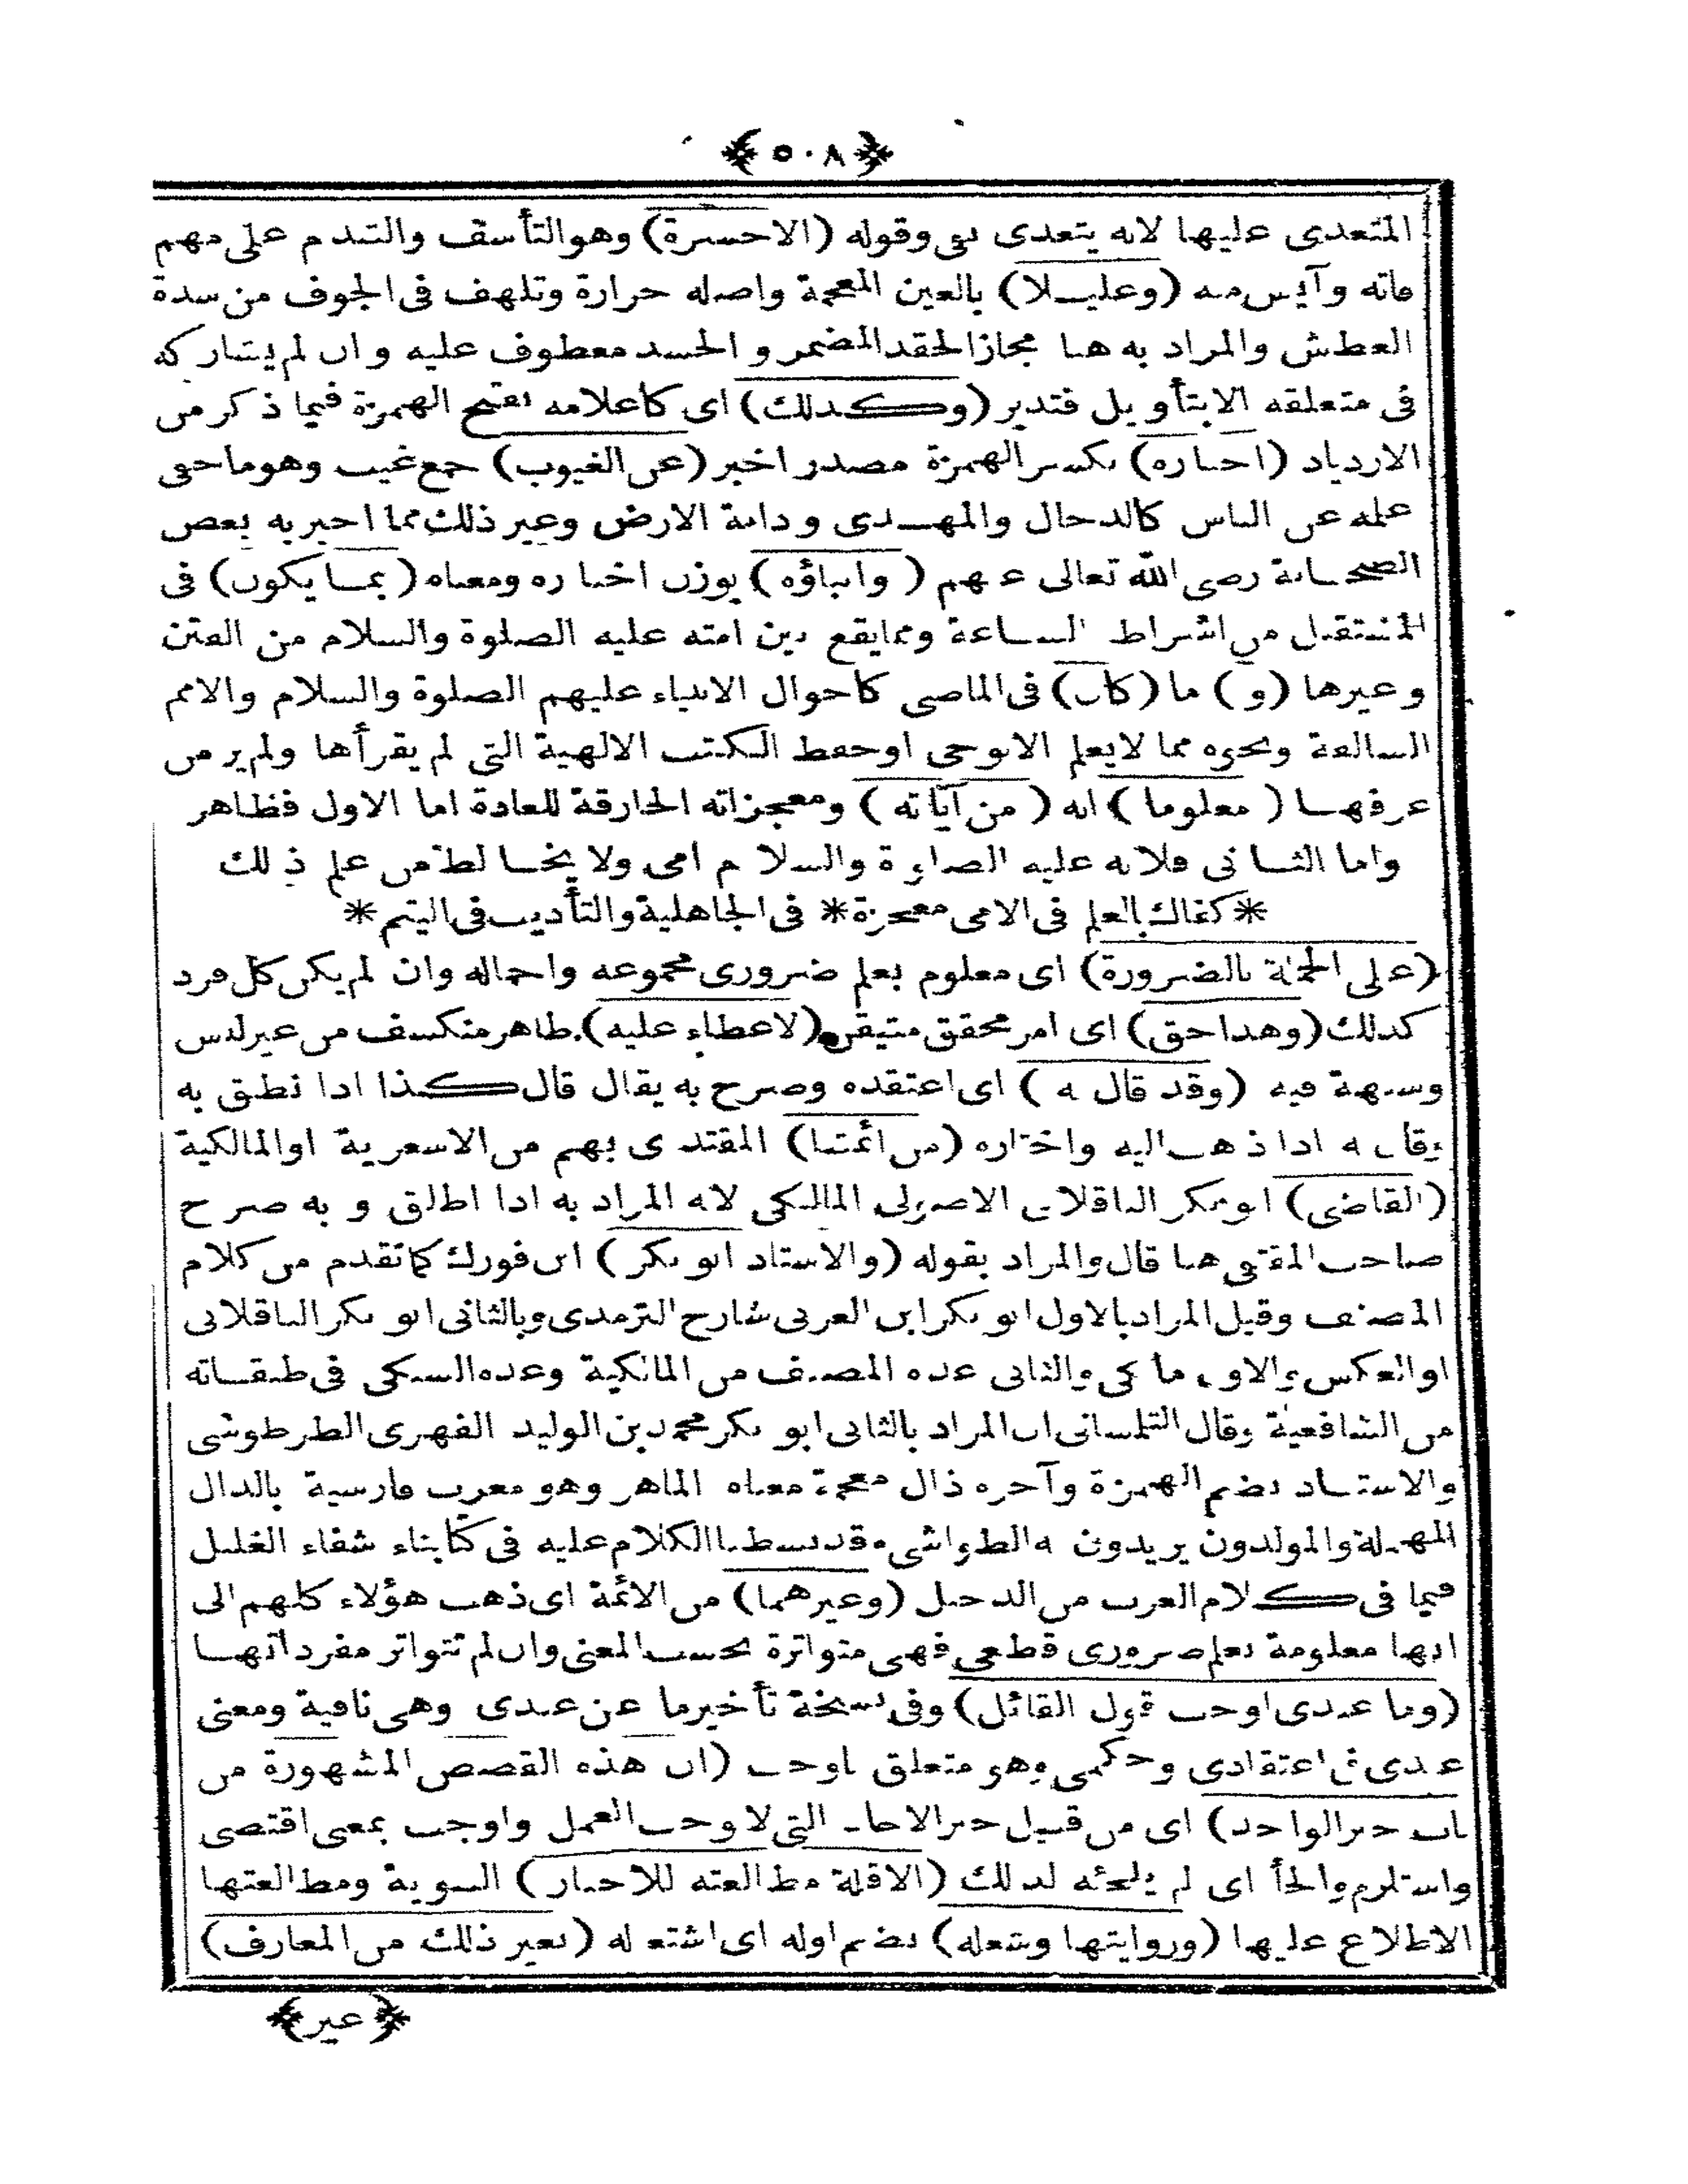 ﴿٥٠٨﴾
المتعدى عليها لانه يتعدى بفى وقوله (الاحسرة) وهو التأسف والتندم على مهم
فاته وآيس منه (وغليلا) بالغين المعجمة واصله حرارة وتلهف فى الجوف من شدة
العطش والمراد به هنا مجازا لحقد المضمر و الحسد معطوف عليه وان لم يشاركه
فى متعلقه الا بتأويل فتدبر (وكذلك) اى كاعلامه بفتح الهمزة فيما ذكر من
الازدياد (اخباره) بكسر الهمزة مصدر اخبر (عن الغيوب) جمع غيب وهو ما خفى
علمه عن الناس كالدجال والمهدى ودابة الارض وغير ذلك مما اخبر به بعض
الصحابة رضى الله تعالى عنهم (وانباؤه) بوزن اخباره ومعناه (بما يكون) فى
المستقبل من اشراط الساعة ومما يقع بين امته عليه الصلوة والسلام من الفتن
وغيرها (و) ما (كان) فى الماضى كاحوال الانبياء عليهم الصلوة والسلام والامم
السالفة ونحوه مما لا يعلم الا بوحى اوحفظ الكتب الالهية التى لم يقرأها ولم ير من
عرفها (معلوما) انه (من آياته) ومعجزاته الخارقة للعادة اما الاول فظاهر
واما الثانى فلانه عليه الصلوة والسلام امى ولا يخالط من علم ذلك
* كفاك بالعلم فى الامى معجزة * فى الجاهلية والتأديب فى اليتم *
(على الجملة بالضرورة) اى معلوم بعلم ضرورى مجموعه واجماله وان لم يكن كل فرد
كذلك (وهذا حق) اى امر محقق متيقن (لاغطاء عليه) ظاهر منكشف من غير لبس
وشبهة فيه (وقد قال به) اى اعتقده وصرح به يقال قال كذا اذا نطق به
وقال به اذا ذهب اليه واختاره (من أئمتنا) المقتدى بهم من الاشعرية اوالمالكية
(القاضى) ابو بكر الباقلانى الاصولى المالكى لانه المراد به اذا اطلق و به صرح
صاحب المقتفى هنا قال والمراد بقوله (والاستاذ ابو بكر) ابن فورك كما تقدم من كلام
المصنف وقيل المراد بالاول ابو بكر ابن العربى شارح الترمذى وبالثانى ابو بكر الباقلانى
اوالعكس والاول مالكى والثانى عده المصنف من المالكية وعده السبكى فى طبقاته
من الشافعية وقال التلمسانى ان المراد بالثانى ابو بكر محمد بن الوليد الفهرى الطرطوشى
والاستاذ بضم الهمزة وآخره ذال معجمة معناه الماهر وهو معرب فارسية بالدال
المهملة والمولدون يريدون به الطواشى وقد بسطنا الكلام عليه فى كتابناء شفاء الغليل
فيما فى كلام العرب من الدخيل (وغيرهما) من الائمة اى ذهب هؤلاء كلهم الى
انها معلومة بعلم ضرورى قطعى فهى متواترة بحسب المعنى وان لم تتواتر مفرداتها
(وما عندى اوجب قول القائل) وفى نسخة تأخير ما عن عندى وهى نافية ومعنى
عندى فى اعتقادى وحكمى وهو متعلق باوجب (ان هذه القصص المشهورة من
باب خبر الواحد) اى من قبيل خبر الاحاد التى لا توجب العمل واوجب بمعنى اقتضى
واستلزم والجأ اى لم يلجئه لذلك (الاقلة مطالعته للاخبار) النبوية ومطالعتها
الاطلاع عليها (وروايتها وشغله) بضم اوله اى اشتغاله (بغير ذلك من المعارف)
﴿غير﴾